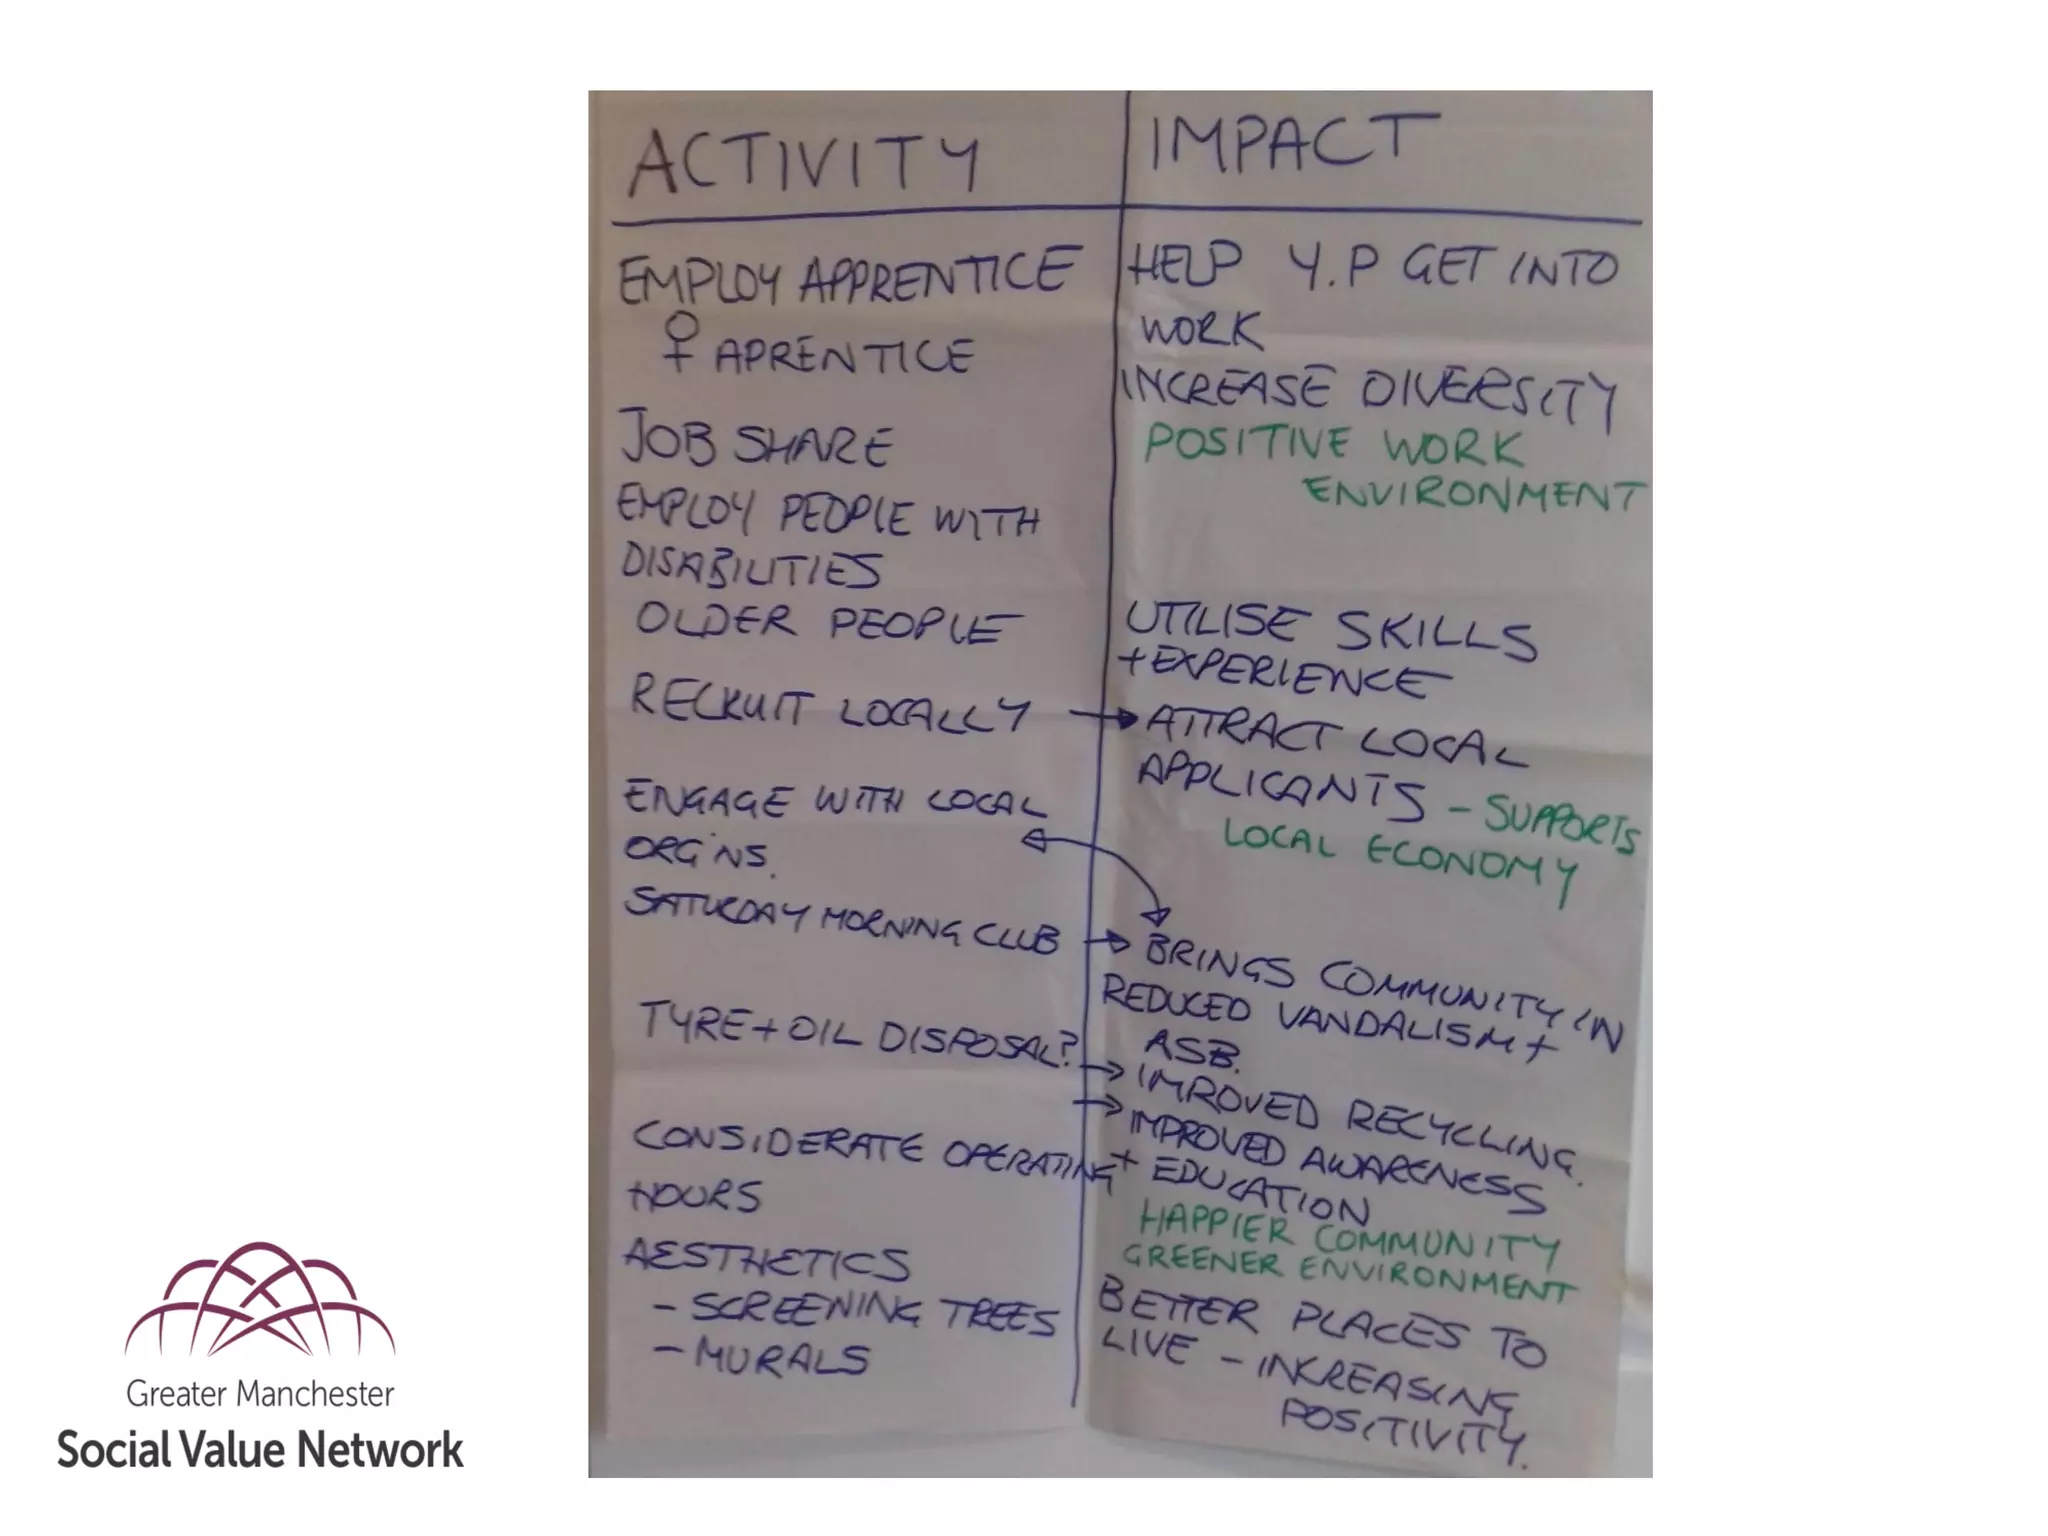 ACTIVITY
EMPLOY APPRENTICE
♀ APRENTICE
JOB SHARE
EMPLOY PEOPLE WITH
DISABILITIES
OLDER PEOPLE
RECRUIT LOCALLY
ENGAGE WITH LOCAL
ORG'NS.
SATURDAY MORNING CLUB
TYRE + OIL DISPOSAL?
CONSIDERATE OPERATING
HOURS
AESTHETICS
- SCREENING TREES
- MURALS
IMPACT
HELP Y.P GET INTO
WORK
INCREASE DIVERSITY
POSITIVE WORK
ENVIRONMENT
UTILISE SKILLS
+ EXPERIENCE
ATTRACT LOCAL
APPLICANTS - SUPPORTS
LOCAL ECONOMY
BRINGS COMMUNITY IN
REDUCED VANDALISM +
ASB.
IMROVED RECYCLING.
IMPROVED AWARENESS
+ EDUCATION
HAPPIER COMMUNITY
GREENER ENVIRONMENT
BETTER PLACES TO
LIVE - INCREASING
POSITIVITY.
Greater Manchester
Social Value Network